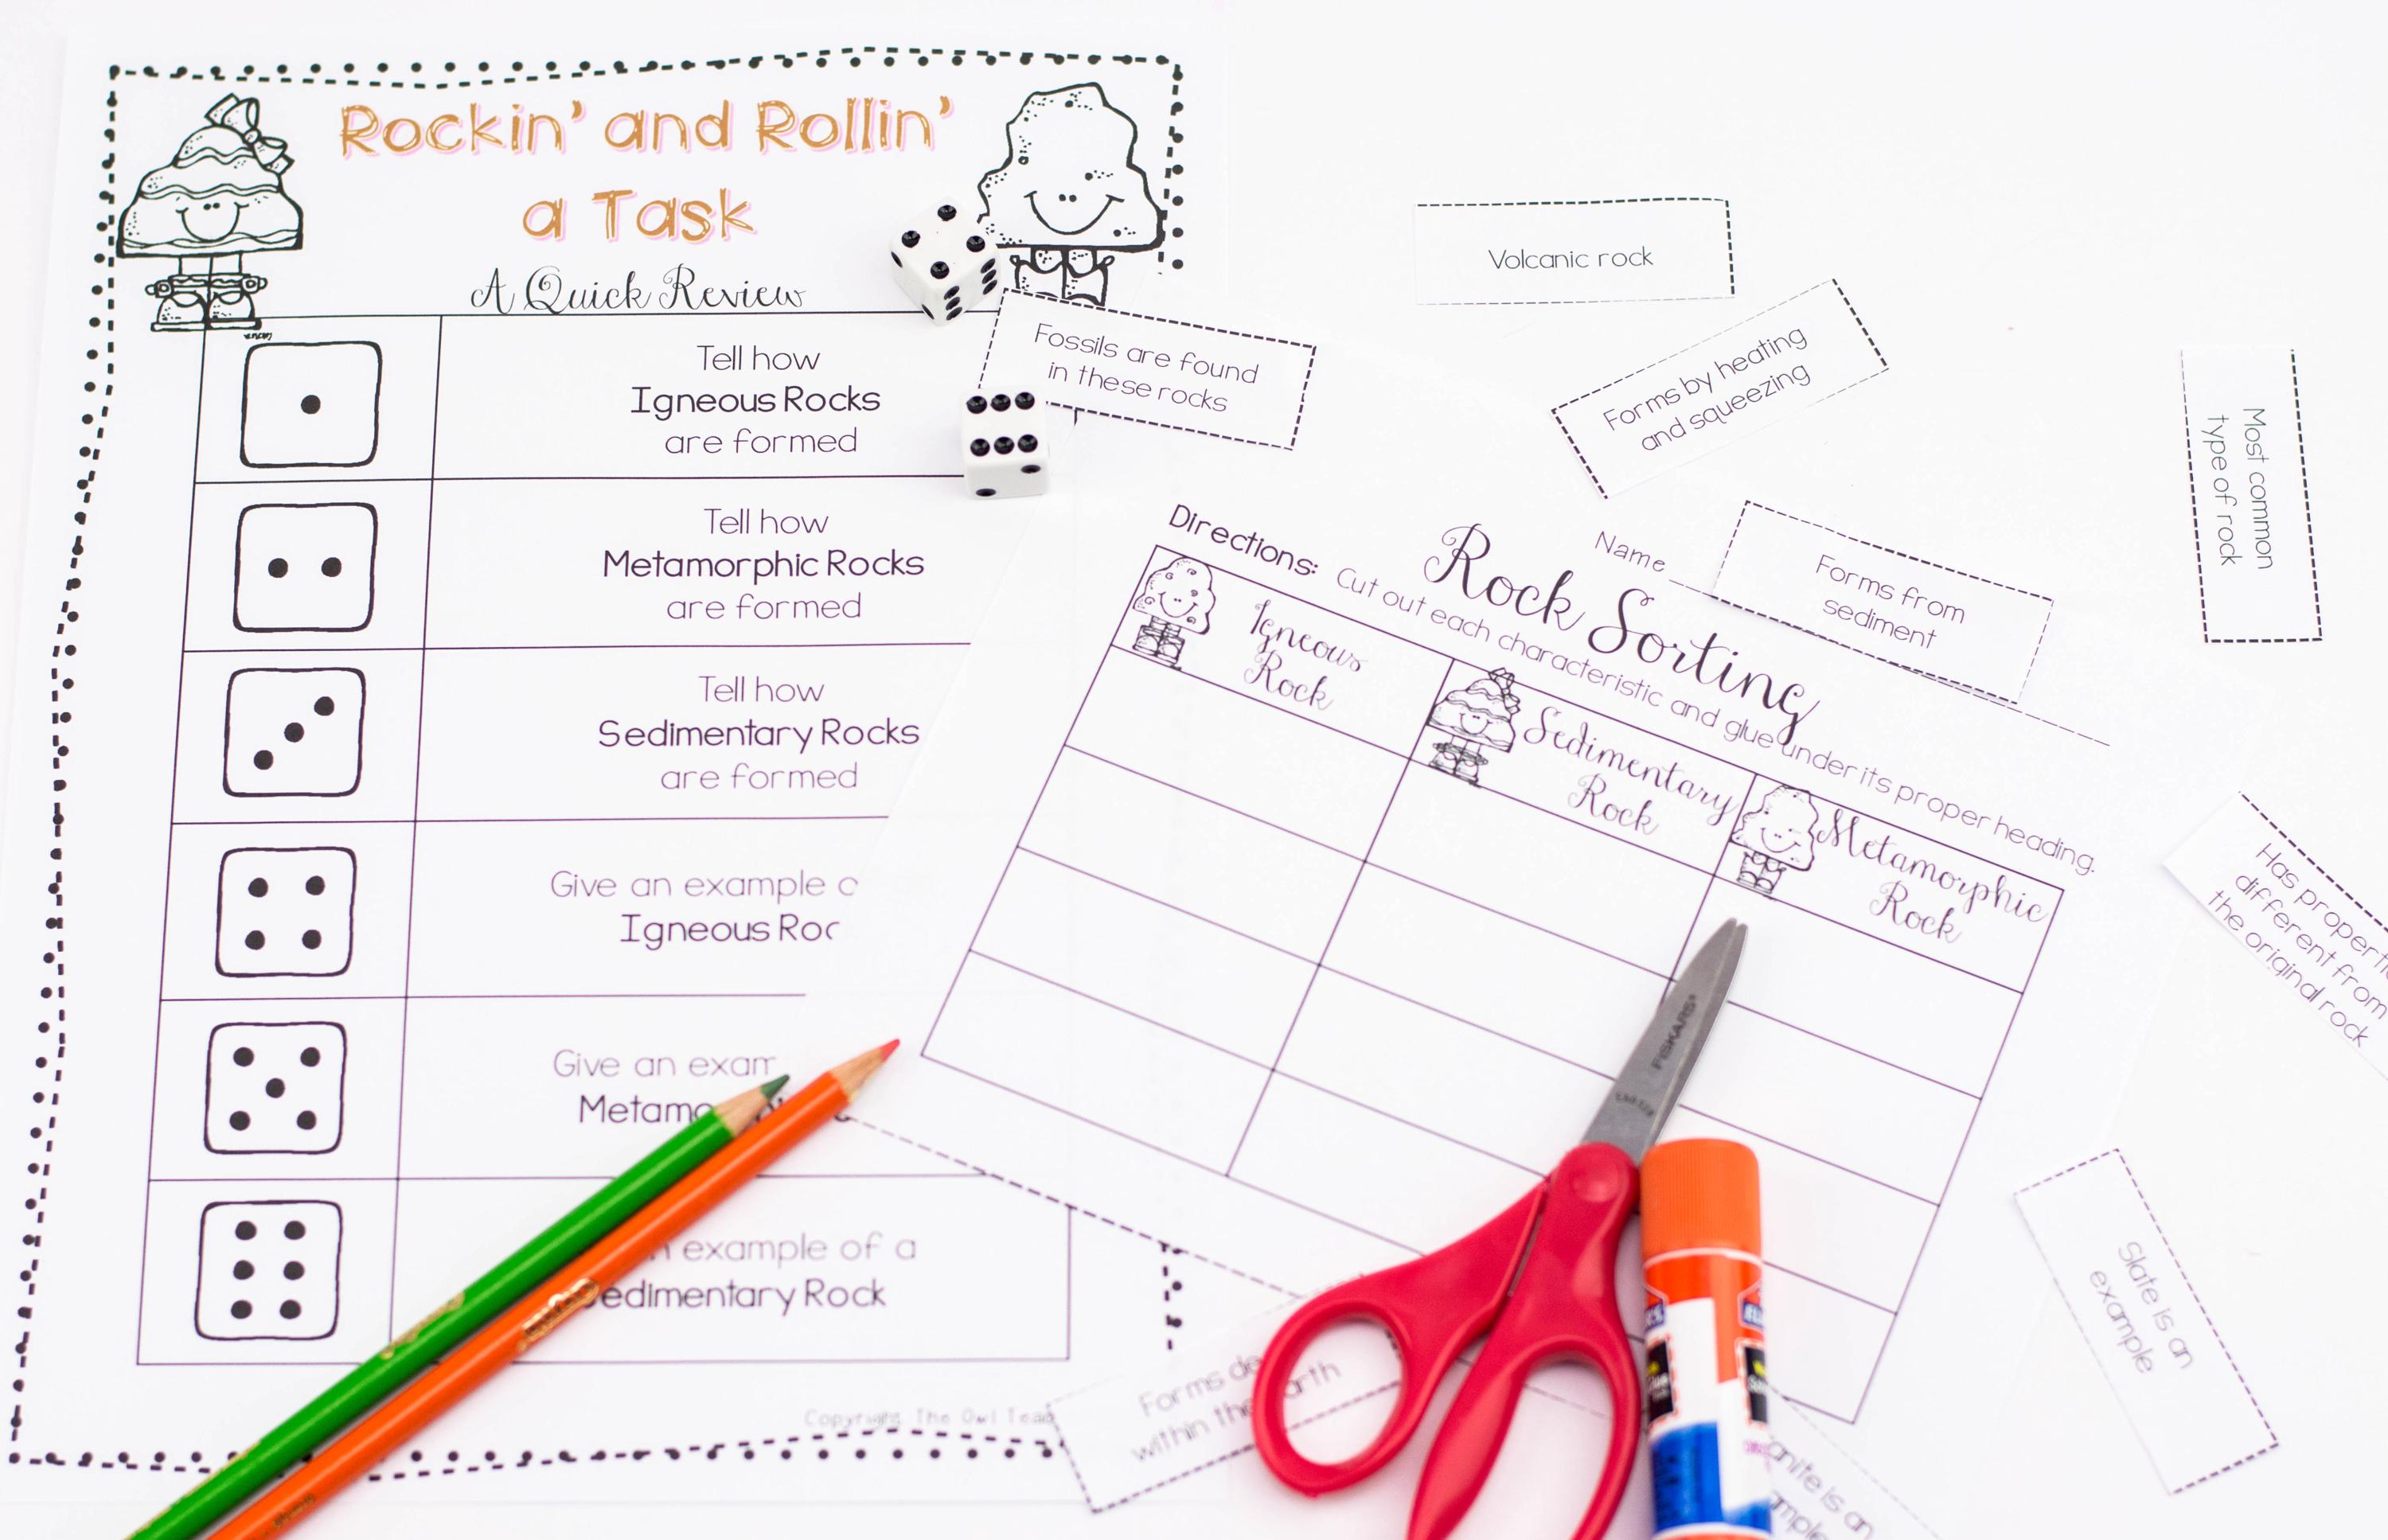 Rockin' and Rollin'
a Task
A Quick Review
Tell how
Igneous Rocks
are formed
Tell how
Metamorphic Rocks
are formed
Tell how
Sedimentary Rocks
are formed
Give an example
Igneous
Give an
example of a
Sedimentary Rock
Copyright The Owl
Fossils are found
in these rocks
Volcanic rock
Forms by heating
and squeezing
Most common
type of rock
Forms from
sediment
Name
Rock Sorting
Directions: Cut out each characteristic and glue under its proper heading.
Igneous
Rock
Sedimentary
Rock
Metamorphic
Rock
Has
different from
the original rock
Slate is an
example
Forms
within the
is an
FISKARS